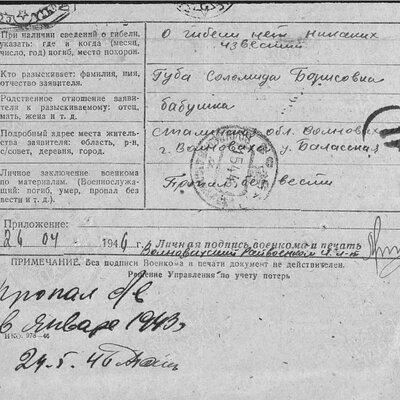 При наличии сведений о гибели,
указать: где и когда (месяц,
число, год) погиб, место похорон.
О гибели нет никаких
известий
Кто разыскивает: фамилия, имя,
отчество заявителя.
Губа Соломида Борисовна
Родственное отношение заяви-
теля к разыскиваемому: отец,
мать, жена и т. д.
бабушка
Подробный адрес места житель-
ства заявителя: область, р-н,
с/совет, деревня, город.
Сталинская обл. Волновах
г. Волноваха у. Баласная
Личное заключение военкома
по материалам. (Военнослужа-
щий: погиб, умер, пропал без
вести и т. д.).
Пропал без вести
Приложение:
26 04 1946 г. Личная подпись военкома и печать
Волновахский Райвоенком
ПРИМЕЧАНИЕ. Без подписи Военкома и печати документ не действителен.
Решение Управления по учету потерь
пропал б/в
в январе 1943г
978—46
24.5.46